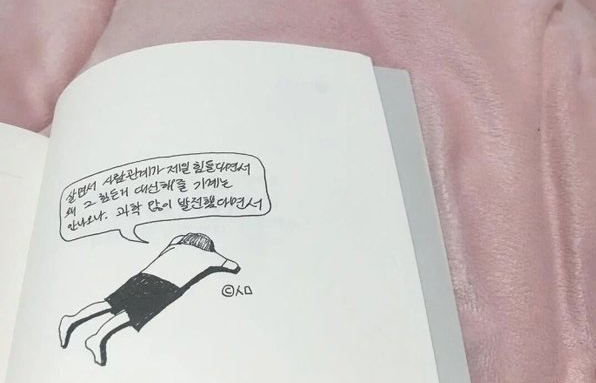 살면서 사람관계가 제일 힘들다면서
왜 그 힘든거 대신해줄 기계는
안나오냐. 과학 많이 발전했다면서
©ㅅㅁ